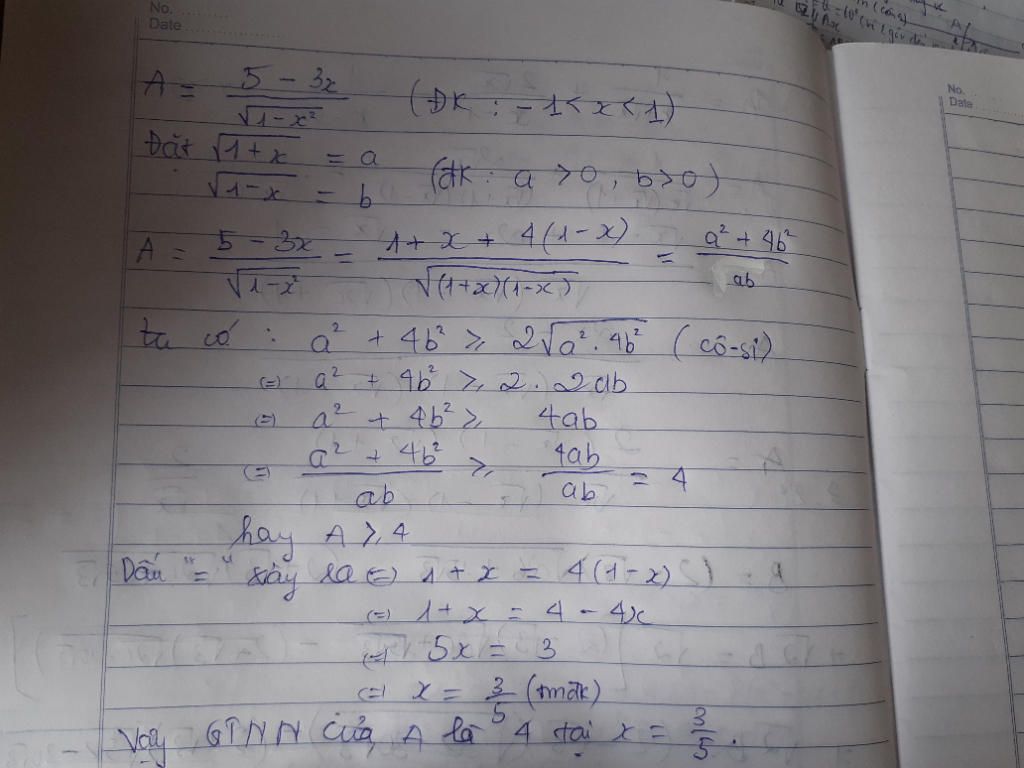 No.
Date
A = \frac{5 - 3x}{\sqrt{1-x^2}} (ĐK : -1 < x < 1)
Đặt \sqrt{1+x} = a
\sqrt{1-x} = b (đk : a > 0, b > 0)
A = \frac{5 - 3x}{\sqrt{1-x^2}} = \frac{1 + x + 4(1-x)}{\sqrt{(1+x)(1-x)}} = \frac{a^2 + 4b^2}{ab}
ta có : a² + 4b² ⩾ 2\sqrt{a^2 . 4b^2} (cô-si)
(=) a² + 4b² ⩾ 2 . 2ab
(=) a² + 4b² ⩾ 4ab
(=) \frac{a^2 + 4b^2}{ab} ⩾ \frac{4ab}{ab} = 4
hay A ⩾ 4
Dấu "=" xảy ra (=) 1 + x = 4(1-x)
(=) 1 + x = 4 - 4x
(=) 5x = 3
(=) x = \frac{3}{5} (tmđk)
Vậy GTNN của A là 4 tại x = \frac{3}{5}.
No.
Date